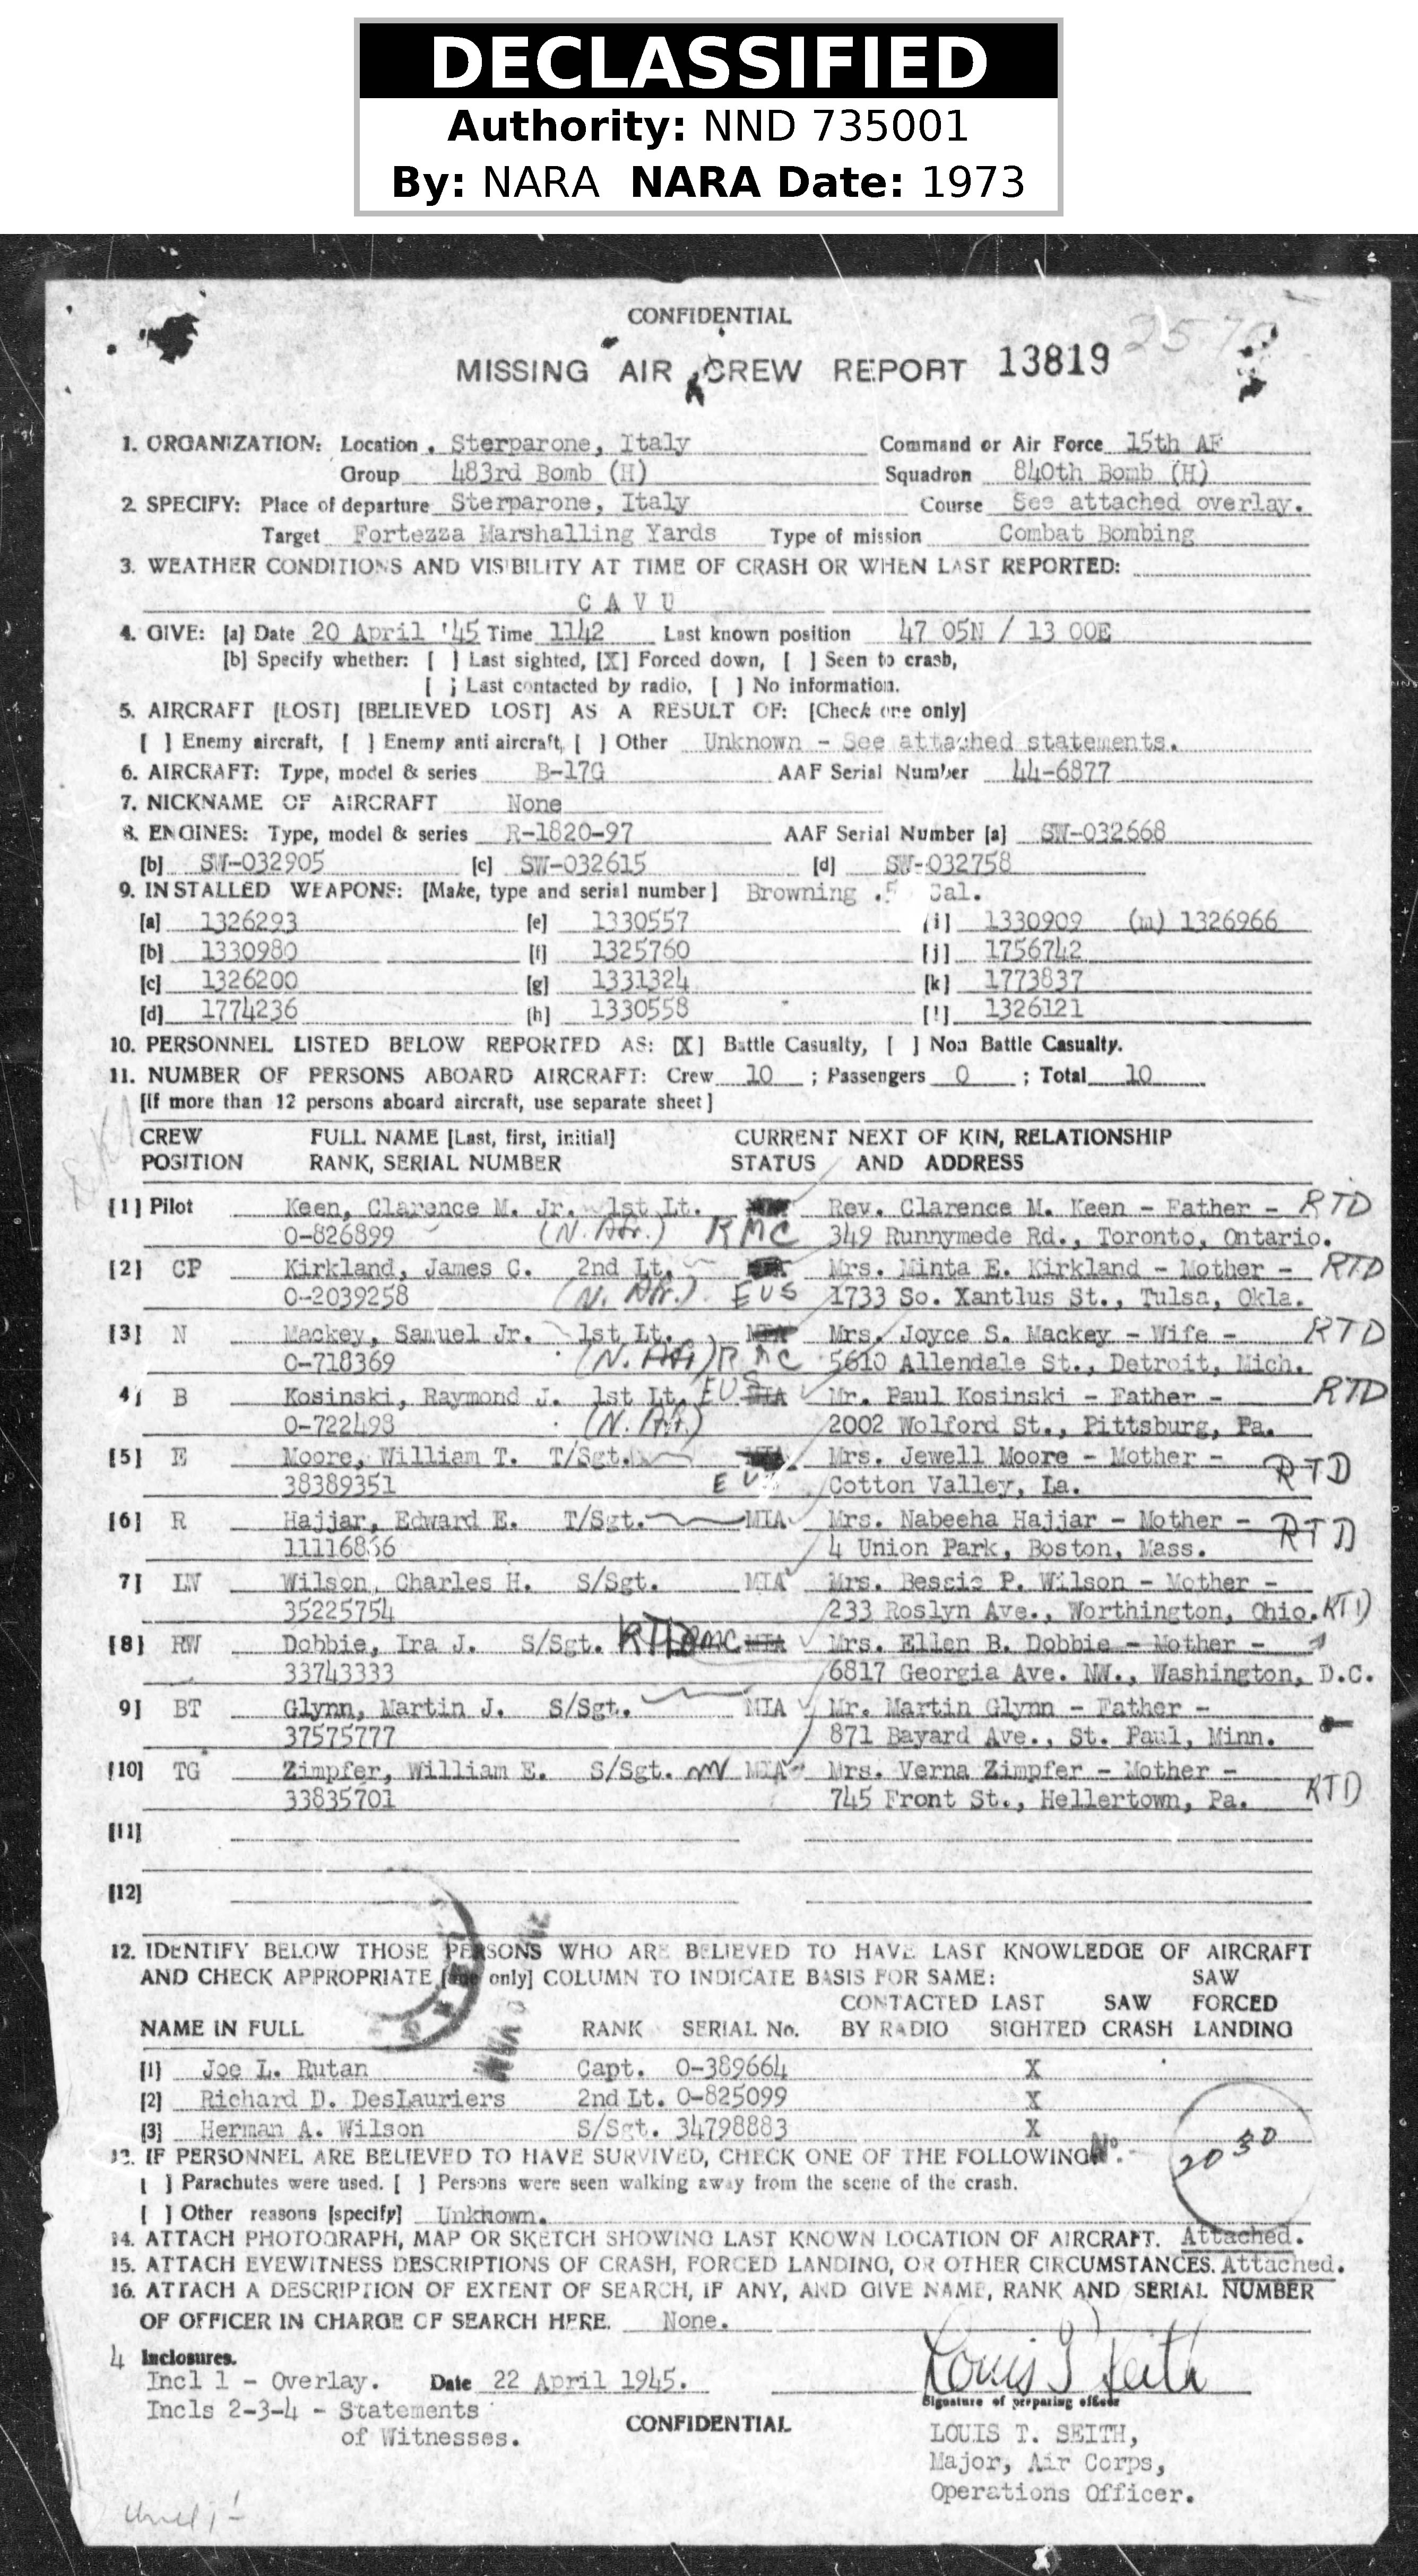 DECLASSIFIED
Authority: NND 735001
By: NARA NARA Date: 1973
CONFIDENTIAL
MISSING AIR CREW REPORT 13819
1. ORGANIZATION: Location . Sterparone, Italy Command or Air Force 15th AF
Group 483rd Bomb (H) Squadron 840th Bomb (H)
2. SPECIFY: Place of departure Sterparone, Italy Course See attached overlay.
Target Fortezza Marshalling Yards Type of mission Combat Bombing
3. WEATHER CONDITIONS AND VISIBILITY AT TIME OF CRASH OR WHEN LAST REPORTED:
C A V U
4. GIVE: [a] Date 20 April '45 Time 1142 Last known position 47 05N / 13 00E
[b] Specify whether: [ ] Last sighted, [X] Forced down, [ ] Seen to crash,
[ ] Last contacted by radio, [ ] No information.
5. AIRCRAFT [LOST] [BELIEVED LOST] AS A RESULT OF: [Check one only]
[ ] Enemy aircraft, [ ] Enemy anti aircraft, [ ] Other Unknown - See attached statements.
6. AIRCRAFT: Type, model & series B-17G AAF Serial Number 44-6877
7. NICKNAME OF AIRCRAFT None
8. ENGINES: Type, model & series R-1820-97 AAF Serial Number [a] SW-032668
[b] SW-032905 [c] SW-032615 [d] SW-032758
9. INSTALLED WEAPONS: [Make, type and serial number] Browning .5 Cal.
[a] 1326293 [e] 1330557 [i] 1330909 (m) 1326966
[b] 1330980 [f] 1325760 [j] 1756742
[c] 1326200 [g] 1331324 [k] 1773837
[d] 1774236 [h] 1330558 [l] 1326121
10. PERSONNEL LISTED BELOW REPORTED AS: [X] Battle Casualty, [ ] Non Battle Casualty.
11. NUMBER OF PERSONS ABOARD AIRCRAFT: Crew 10 ; Passengers 0 ; Total 10
[If more than 12 persons aboard aircraft, use separate sheet]
CREW FULL NAME [Last, first, initial] CURRENT NEXT OF KIN, RELATIONSHIP
POSITION RANK, SERIAL NUMBER STATUS AND ADDRESS
[1] Pilot Keen, Clarence M. Jr. 1st Lt. Rev. Clarence M. Keen - Father - RTD
0-826899 (N. Afr.) RMC 349 Runnymede Rd., Toronto, Ontario.
[2] CP Kirkland, James C. 2nd Lt. Mrs. Minta E. Kirkland - Mother - RTD
0-2039258 (N. Afr.) EUS 1733 So. Xantlus St., Tulsa, Okla.
[3] N Mackey, Samuel Jr. 1st Lt. MIA Mrs. Joyce S. Mackey - Wife - RTD
0-718369 (N. Afr) RMC 5610 Allendale St., Detroit, Mich.
4] B Kosinski, Raymond J. 1st Lt. EUS MIA Mr. Paul Kosinski - Father - RTD
0-722498 (N. Af.) 2002 Wolford St., Pittsburg, Pa.
[5] E Moore, William T. T/Sgt. MIA Mrs. Jewell Moore - Mother - RTD
38389351 Cotton Valley, La.
[6] R Hajjar, Edward E. T/Sgt. MIA Mrs. Nabeeha Hajjar - Mother - RTD
4 Union Park, Boston, Mass.
7] LW Wilson, Charles H. S/Sgt. MIA Mrs. Bessie P. Wilson - Mother -
35225754 233 Roslyn Ave., Worthington, Ohio. RTD
[8] RW Dobbie, Ira J. S/Sgt. RTD RMC MIA Mrs. Ellen B. Dobbie - Mother -
33743333 6817 Georgia Ave. NW., Washington, D.C.
9] BT Glynn, Martin J. S/Sgt. MIA Mr. Martin Glynn - Father -
37575777 871 Bayard Ave., St. Paul, Minn.
[10] TG Zimpfer, William E. S/Sgt. MIA Mrs. Verna Zimpfer - Mother -
33835701 745 Front St., Hellertown, Pa. RTD
[11]
[12]
12. IDENTIFY BELOW THOSE PERSONS WHO ARE BELIEVED TO HAVE LAST KNOWLEDGE OF AIRCRAFT
AND CHECK APPROPRIATE [one only] COLUMN TO INDICATE BASIS FOR SAME: SAW
CONTACTED LAST SAW FORCED
NAME IN FULL RANK SERIAL No. BY RADIO SIGHTED CRASH LANDING
[1] Joe L. Rutan Capt. 0-389664 X
[2] Richard D. DesLauriers 2nd Lt. 0-825099 X
[3] Herman A. Wilson S/Sgt. 34798883 X
13. IF PERSONNEL ARE BELIEVED TO HAVE SURVIVED, CHECK ONE OF THE FOLLOWING
2030
[ ] Parachutes were used. [ ] Persons were seen walking away from the scene of the crash.
[ ] Other reasons [specify] Unknown.
14. ATTACH PHOTOGRAPH, MAP OR SKETCH SHOWING LAST KNOWN LOCATION OF AIRCRAFT. Attached.
15. ATTACH EYEWITNESS DESCRIPTIONS OF CRASH, FORCED LANDING, OR OTHER CIRCUMSTANCES. Attached.
16. ATTACH A DESCRIPTION OF EXTENT OF SEARCH, IF ANY, AND GIVE NAME, RANK AND SERIAL NUMBER
OF OFFICER IN CHARGE OF SEARCH HERE. None.
4 Inclosures. Louis T Seith
Incl 1 - Overlay. Date 22 April 1945.
Signature of preparing officer
Incls 2-3-4 - Statements
of Witnesses.
CONFIDENTIAL
LOUIS T. SEITH,
Major, Air Corps,
Operations Officer.